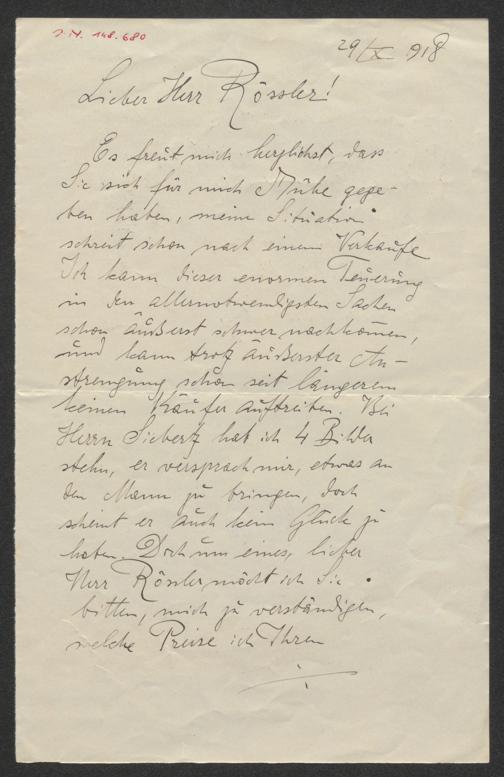 J.N. 148.680
29/IX 918
Lieber Herr Rössler!
Es freut mich herzlichst, dass
Sie sich für mich Mühe gege-
ben haben, meine Situation
schreit schon nach einem Verkaufe
Ich kann dieser enormen Teuerung
in den allernotwendigsten Sachen
schon äußerst schwer nachkommen,
und kann trotz äußerster An-
strengung schon seit längerem
keinen Käufer auftreiben. Bei
Herrn Siebertz hat ich 4 Bilder
stehn, er versprach mir, etwas an
den Mann zu bringen, doch
scheint er auch kein Glück zu
haben. Doch um eines, lieber
Herr Rössler, möcht ich Sie
bitten, mich zu verständigen,
welche Preise ich Ihren